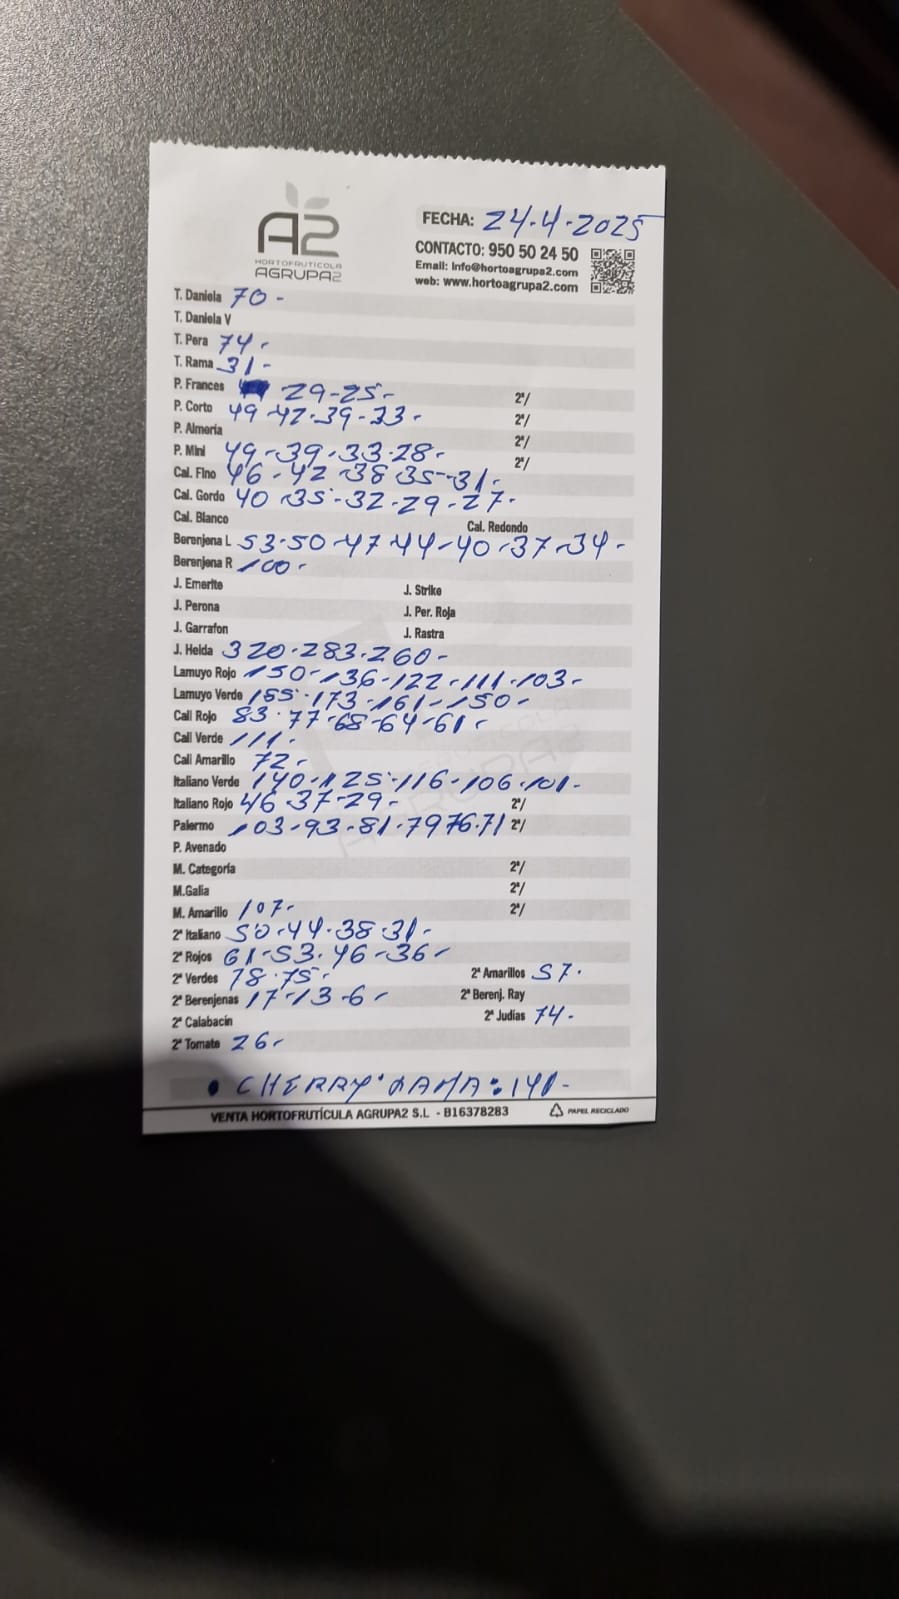 A2
HORTOFRUTÍCOLA
AGRUPA2
FECHA: 24-4-2025
CONTACTO: 950 50 24 50
Email: info@hortoagrupa2.com
web: www.hortoagrupa2.com
T. Daniela 70-
T. Daniela V
T. Pera 74-
T. Rama 31-
P. Frances 29-25- 2ª/
P. Corto 49-42-39-33- 2ª/
P. Almería 2ª/
P. Mini 49-39-33-28- 2ª/
Cal. Fino 46-42-38-35-31-
Cal. Gordo 40-35-32-29-27-
Cal. Blanco Cal. Redondo
Berenjena L 53-50-47-44-40-37-34-
Berenjena R 100-
J. Emerite J. Strike
J. Perona J. Per. Roja
J. Garrafon J. Rastra
J. Helda 320-283-260-
Lamuyo Rojo 150-136-122-111-103-
Lamuyo Verde 173-161-150-
Cali Rojo 83-77-68-64-61-
Cali Verde 111-
Cali Amarillo 72-
Italiano Verde 140-125-116-106-101-
Italiano Rojo 46-37-29- 2ª/
Palermo 103-93-81-79 76-71 2ª/
P. Avenado
M. Categoría 2ª/
M.Galia 2ª/
M. Amarillo 107- 2ª/
2ª Italiano 50-44-38-31-
2ª Rojos 61-53-46-36-
2ª Verdes 78-75- 2ª Amarillos 57-
2ª Berenjenas 17-13-6- 2ª Berenj. Ray
2ª Calabacín 2ª Judías 74-
2ª Tomate 26-
• CHERRY RAMA: 141-
VENTA HORTOFRUTÍCULA AGRUPA2 S.L - B16378283 PAPEL RECICLADO